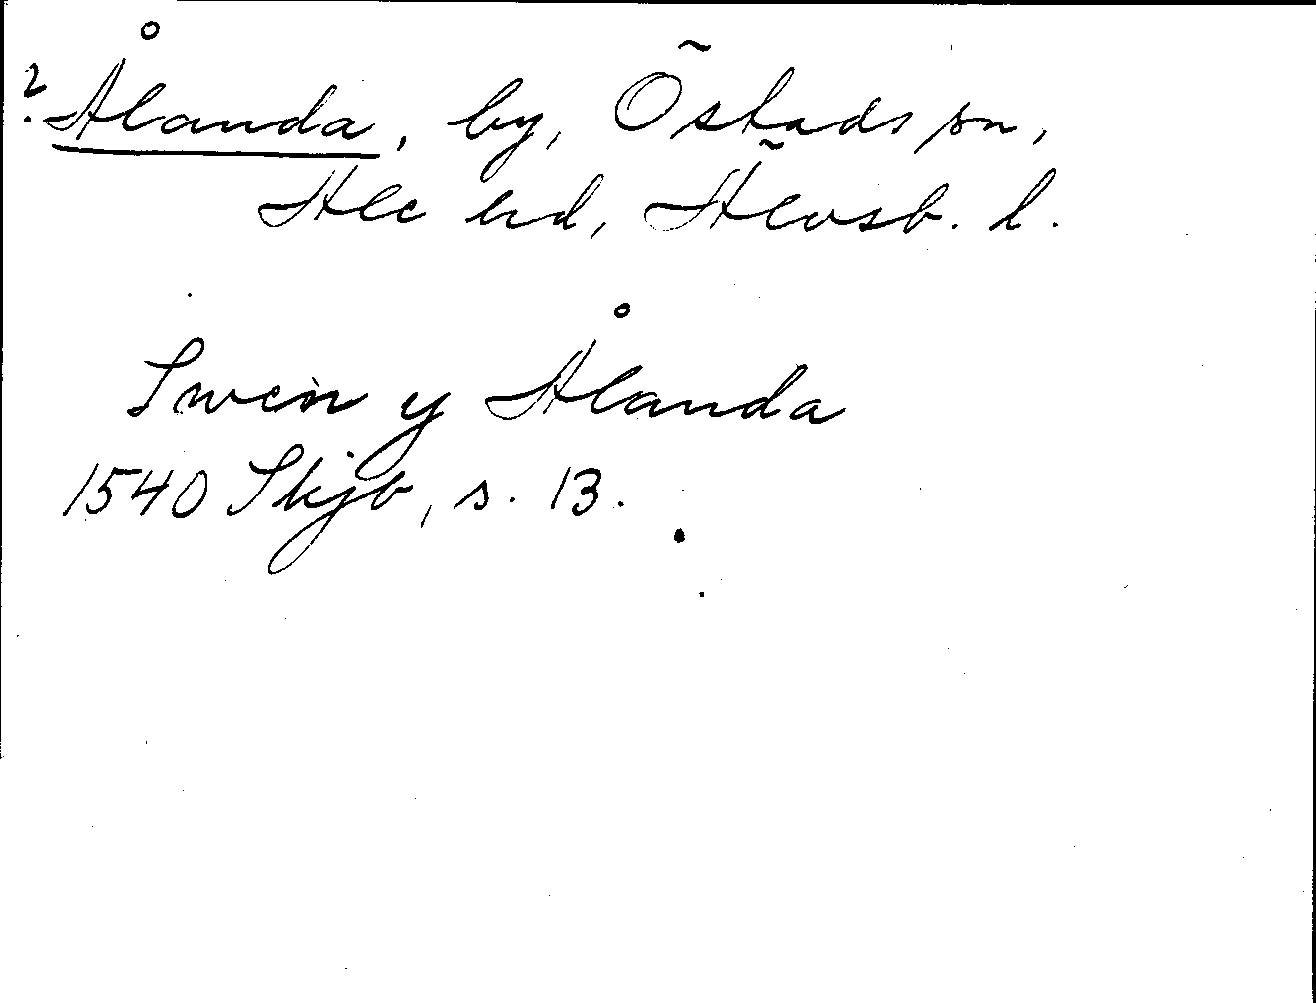 ? Ålanda, by, Östads sn,
Ale hd, Älvsb. l.
Swen y Ålanda
1540 Skjb, s. 13.